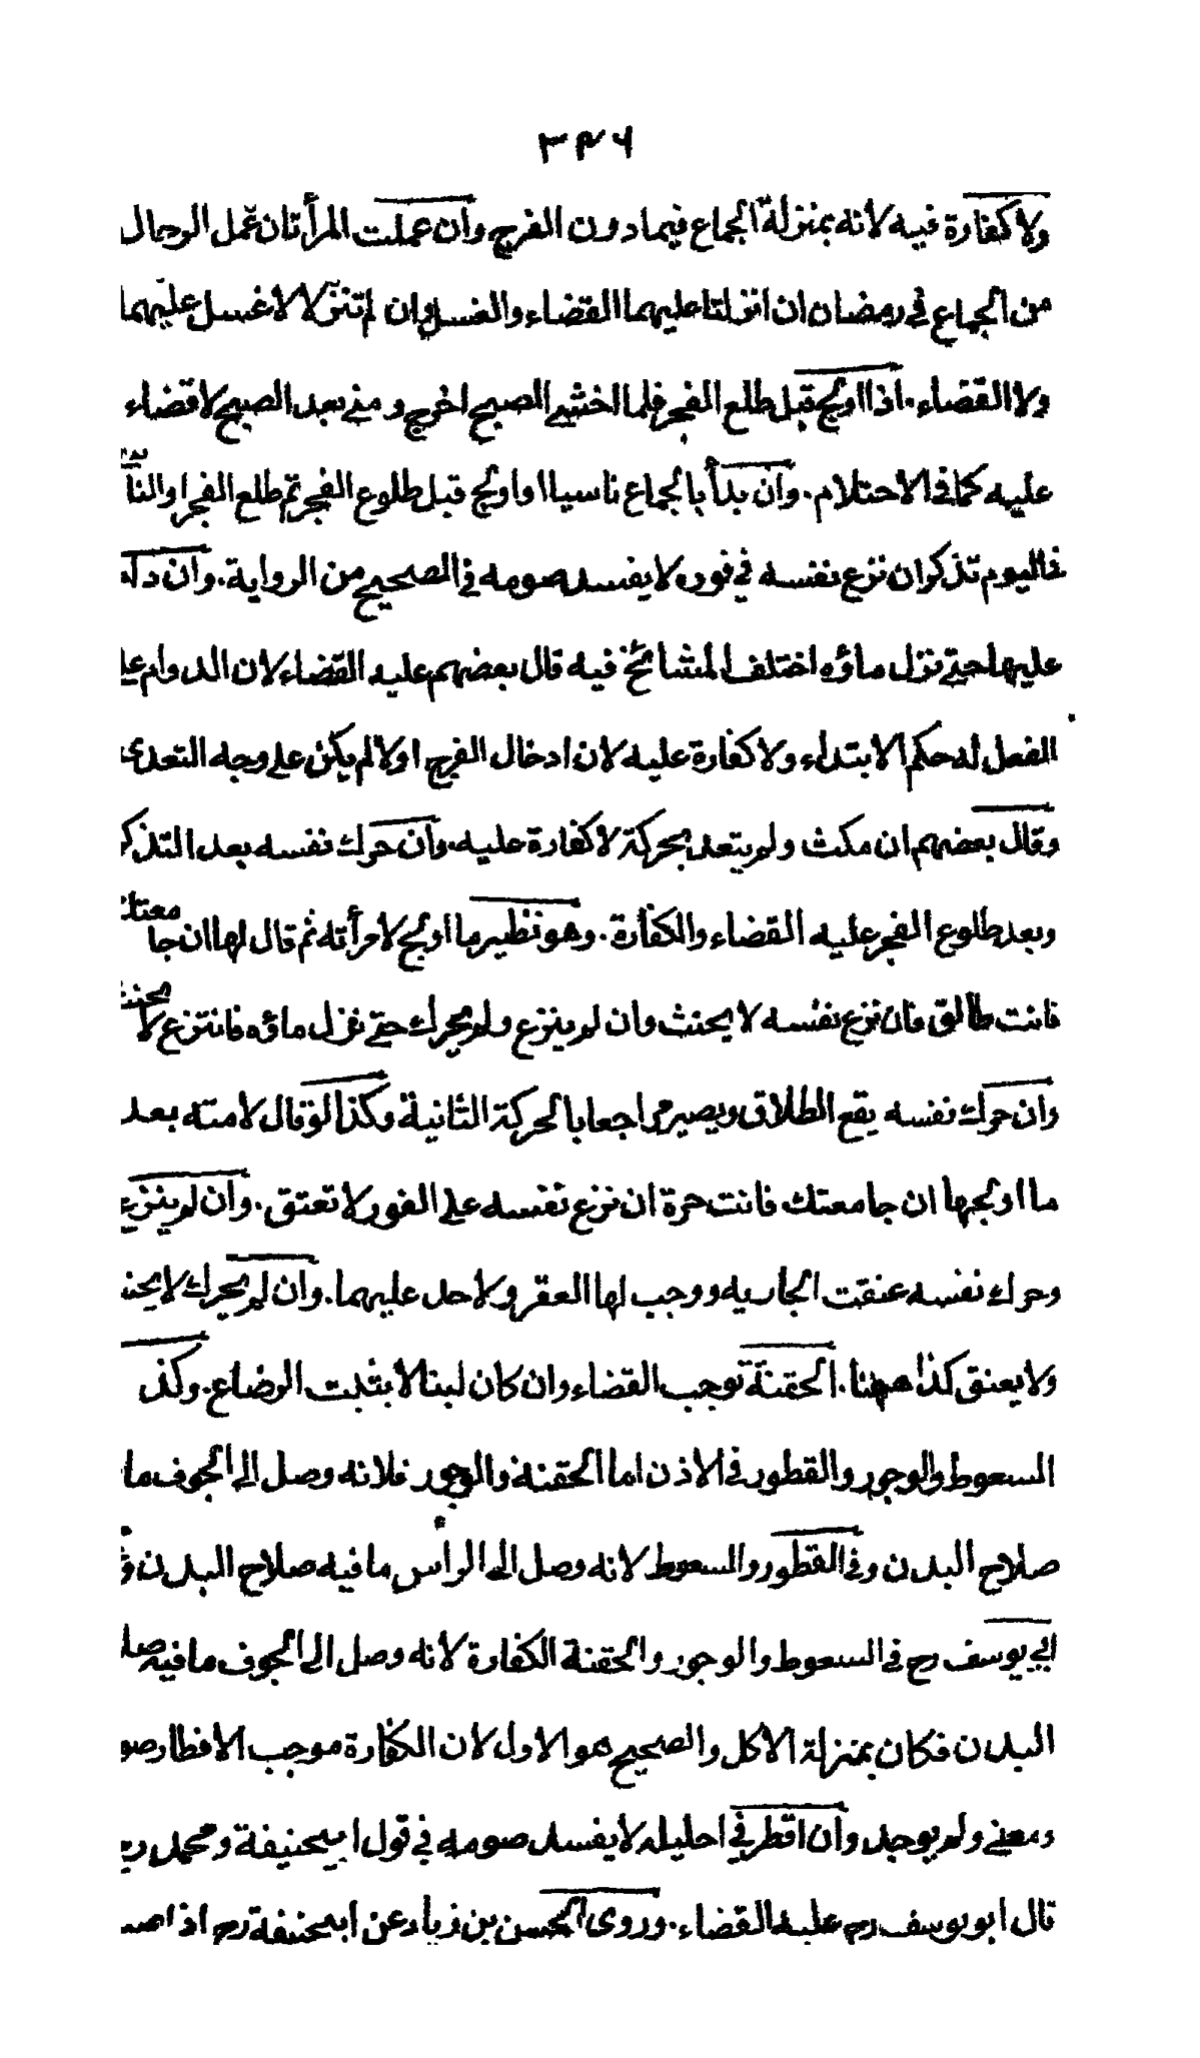 ٣٩٦
ولا كفارة فيه لانه بمنزلة الجماع فيما دون الفرج وان عملت المرأتان عمل الرجال
من الجماع في رمضان ان انزلتا عليهما القضاء والغسل وان لم تنزلا لا غسل عليهما
ولا القضاء. اذا اولج قبل طلع الفجر فلما خشي الصبح اخرج ومني بعد الصبح لا قضاء
عليه كما في الاحتلام. وان بدأ بالجماع ناسيا او اولج قبل طلوع الفجر ثم طلع الفجر او الناسي
تذكر ان نزع نفسه في فوره لا يفسد صومه في الصحيح من الرواية. وان
عليها حتى نزل ماؤه اختلف المشائخ فيه قال بعضهم عليه القضاء لان الدوام على
الفعل له حكم الابتداء ولا كفارة عليه لان ادخال الفرج اولا لم يكن على وجه التعدي
وقال بعضهم ان مكث ولم يتعد بحركة لا كفارة عليه. وان حرك نفسه بعد التذكر
وبعد طلوع الفجر عليه القضاء والكفارة. وهو نظير ما اولج لامرأته ثم قال لها ان جامعتك
فانت طالق فان نزع نفسه لا يحنث وان لم ينزع ولم يحرك حتى نزل ماؤه فانتزع لا يحنث
وان حرك نفسه يقع الطلاق ويصير مراجعا بالحركة الثانية وكذا لو قال لامته بعد
ما اولجها ان جامعتك فانت حرة ان نزع نفسه على الفور لا تعتق. وان لم ينزع
وحرك نفسه عتقت الجاريه ووجب لها العقر ولا حد عليهما. وان لم يحرك لا يحنث
ولا يعتق كذا ههنا. الحقنة توجب القضاء وان كان لبنا لا يثبت الرضاع. وكذ
السعوط والوجور والقطور في الاذن اما الحقنة والوجور فلانه وصل الى الجوف ما
صلاح البدن وفي القطور والسعوط لانه وصل الى الرأس ما فيه صلاح البدن
ابي يوسف رح في السعوط والوجور والحقنة الكفارة لانه وصل الى الجوف ما فيه صلا
البدن فكان بمنزلة الاكل والصحيح هو الاول لان الكفارة موجب الافطار صو
ومعنى ولم يوجد وان اقطر في احليله لا يفسد صومه في قول ابيحنيفة ومحمد رح
قال ابو يوسف رح عليه القضاء. وروى الحسن بن زياد عن ابيحنيفة رح اذا